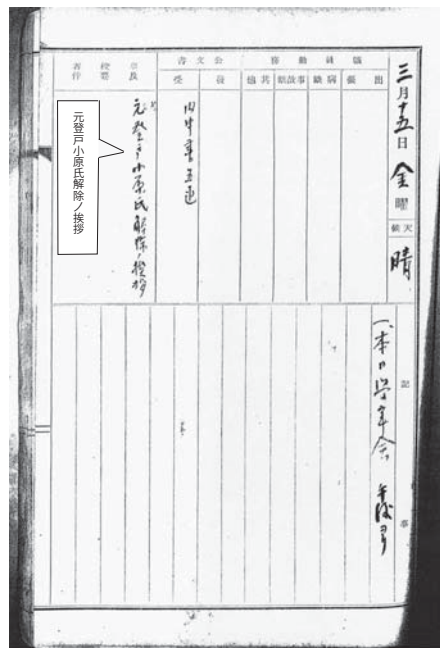 三月十五日 金曜
天候 晴
職員勤務
出張
病欠
事故
其他
公文書
発
受
内申書五通
来校者
要件
元登戸小原氏解除ノ挨拶
元登戸小原氏解除ノ挨拶
記事
一、本日学年会 午後ヨリ